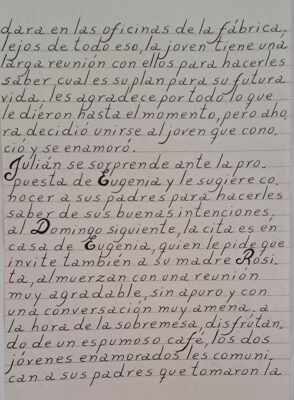 dara en las oficinas de la fábrica,
lejos de todo eso, la joven tiene una
larga reunión con ellos para hacerles
saber cual es su plan para su futura
vida. les agradece por todo lo que
le dieron hasta el momento, pero aho
ra decidió unirse al joven que cono_
ció y se enamoró.
Julián se sorprende ante la pro_
puesta de Eugenia y le sugiere co_
nocer a sus padres para hacerles
saber de sus buenas intenciones,
al Domingo siguiente, la cita es en
casa de Eugenia, quien le pide que
invite también a su madre Rosi_
ta, almuerzan con una reunión
muy agradable, sin apuro y con
una conversación muy amena. a
la hora de la sobremesa, disfrutan_
do de un espumoso café, los dos
jóvenes enamorados les comuni_
can a sus padres que tomaron la